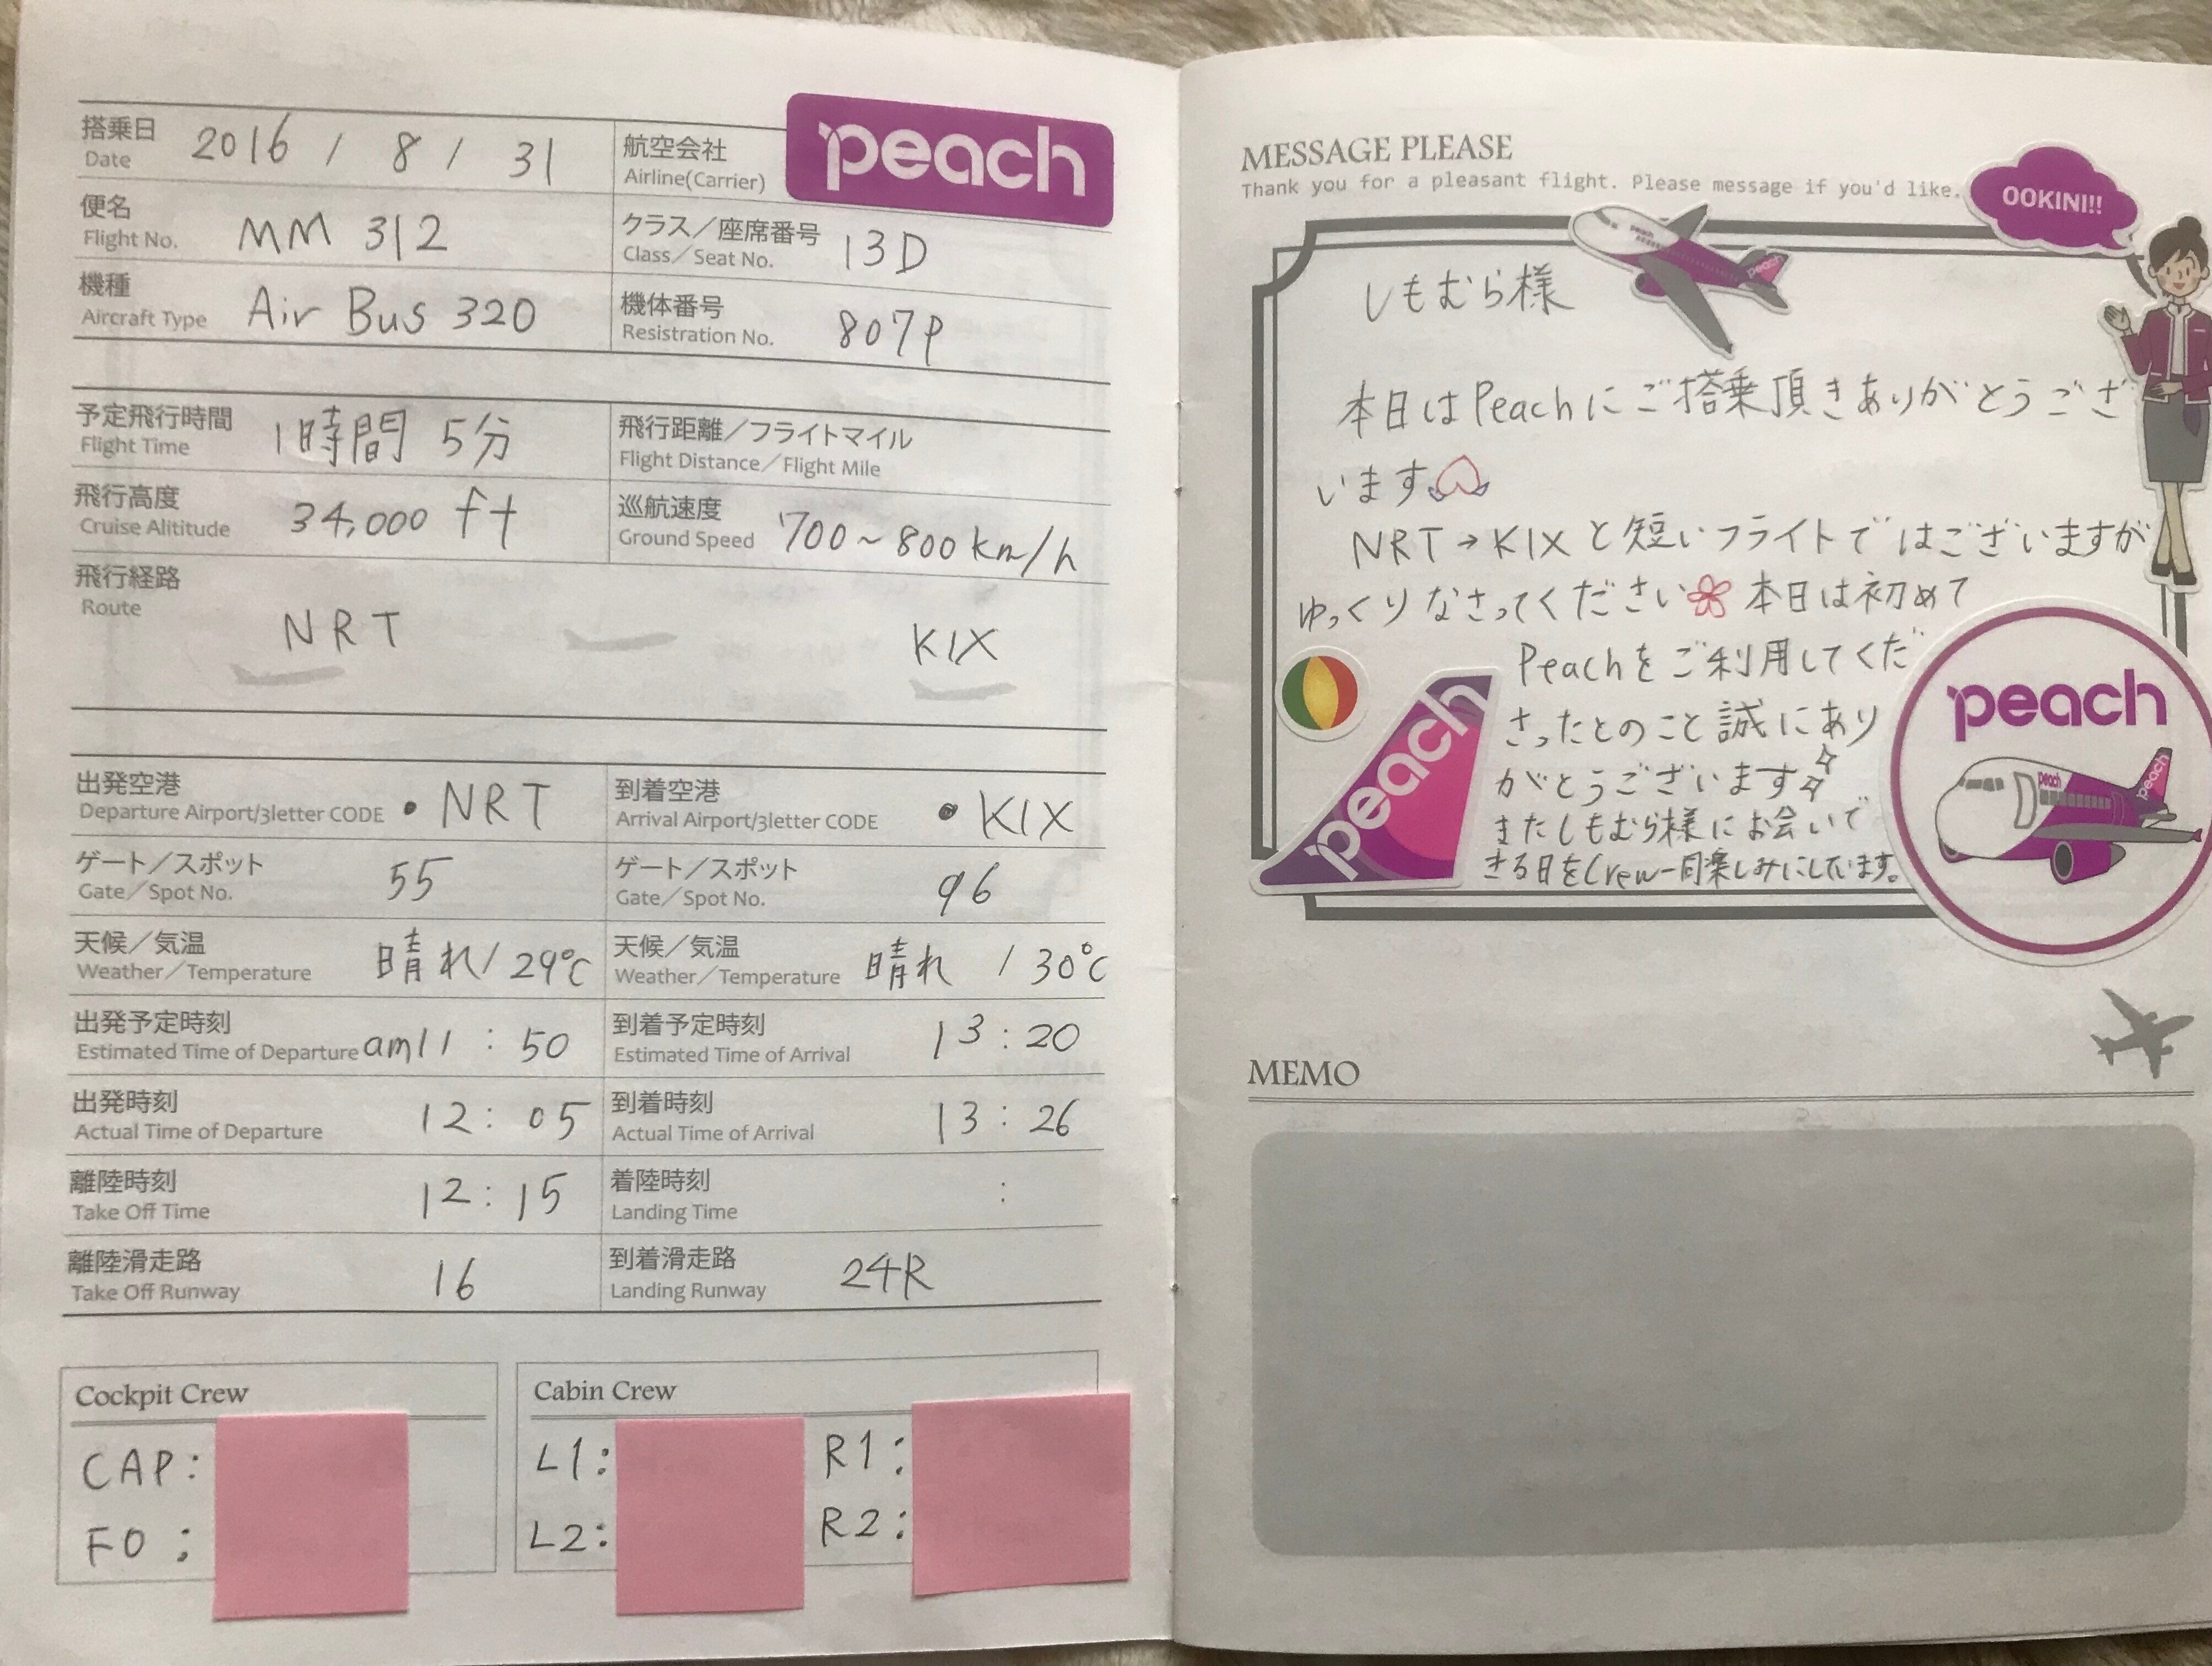 搭乗日 2016 / 8 / 31 航空会社 peach
Date Airline(Carrier)
便名 MM 312 クラス／座席番号 13D
Flight No. Class／Seat No.
機種 Air Bus 320 機体番号 807P
Aircraft Type Resistration No.
予定飛行時間 1時間 5分 飛行距離／フライトマイル
Flight Time Flight Distance／Flight Mile
飛行高度 34,000 ft 巡航速度 700~800km/h
Cruise Alititude Ground Speed
飛行経路
Route
NRT KIX
出発空港 ・NRT 到着空港 ・KIX
Departure Airport/3letter CODE Arrival Airport/3letter CODE
ゲート／スポット 55 ゲート／スポット 96
Gate／Spot No. Gate／Spot No.
天候／気温 晴れ/29℃ 天候／気温 晴れ /30℃
Weather／Temperature Weather／Temperature
出発予定時刻 am11:50 到着予定時刻 13:20
Estimated Time of Departure Estimated Time of Arrival
出発時刻 12:05 到着時刻 13:26
Actual Time of Departure Actual Time of Arrival
離陸時刻 12:15 着陸時刻 :
Take Off Time Landing Time
離陸滑走路 16 到着滑走路 24R
Take Off Runway Landing Runway
Cockpit Crew
CAP:
FO:
Cabin Crew
L1: R1:
L2: R2:
MESSAGE PLEASE
Thank you for a pleasant flight. Please message if you'd like.
OOKINI!!
peach
peach
しもむら様
本日はPeachにご搭乗頂きありがとうござ
います
NRT→KIXと短いフライトではございますが
ゆっくりなさってください 本日は初めて
Peachをご利用してくだ
さったとのこと誠にあり
がとうございます
またしもむら様にお会いで
きる日をCrew一同楽しみにしています。
peach
peach
peach
peach
MEMO